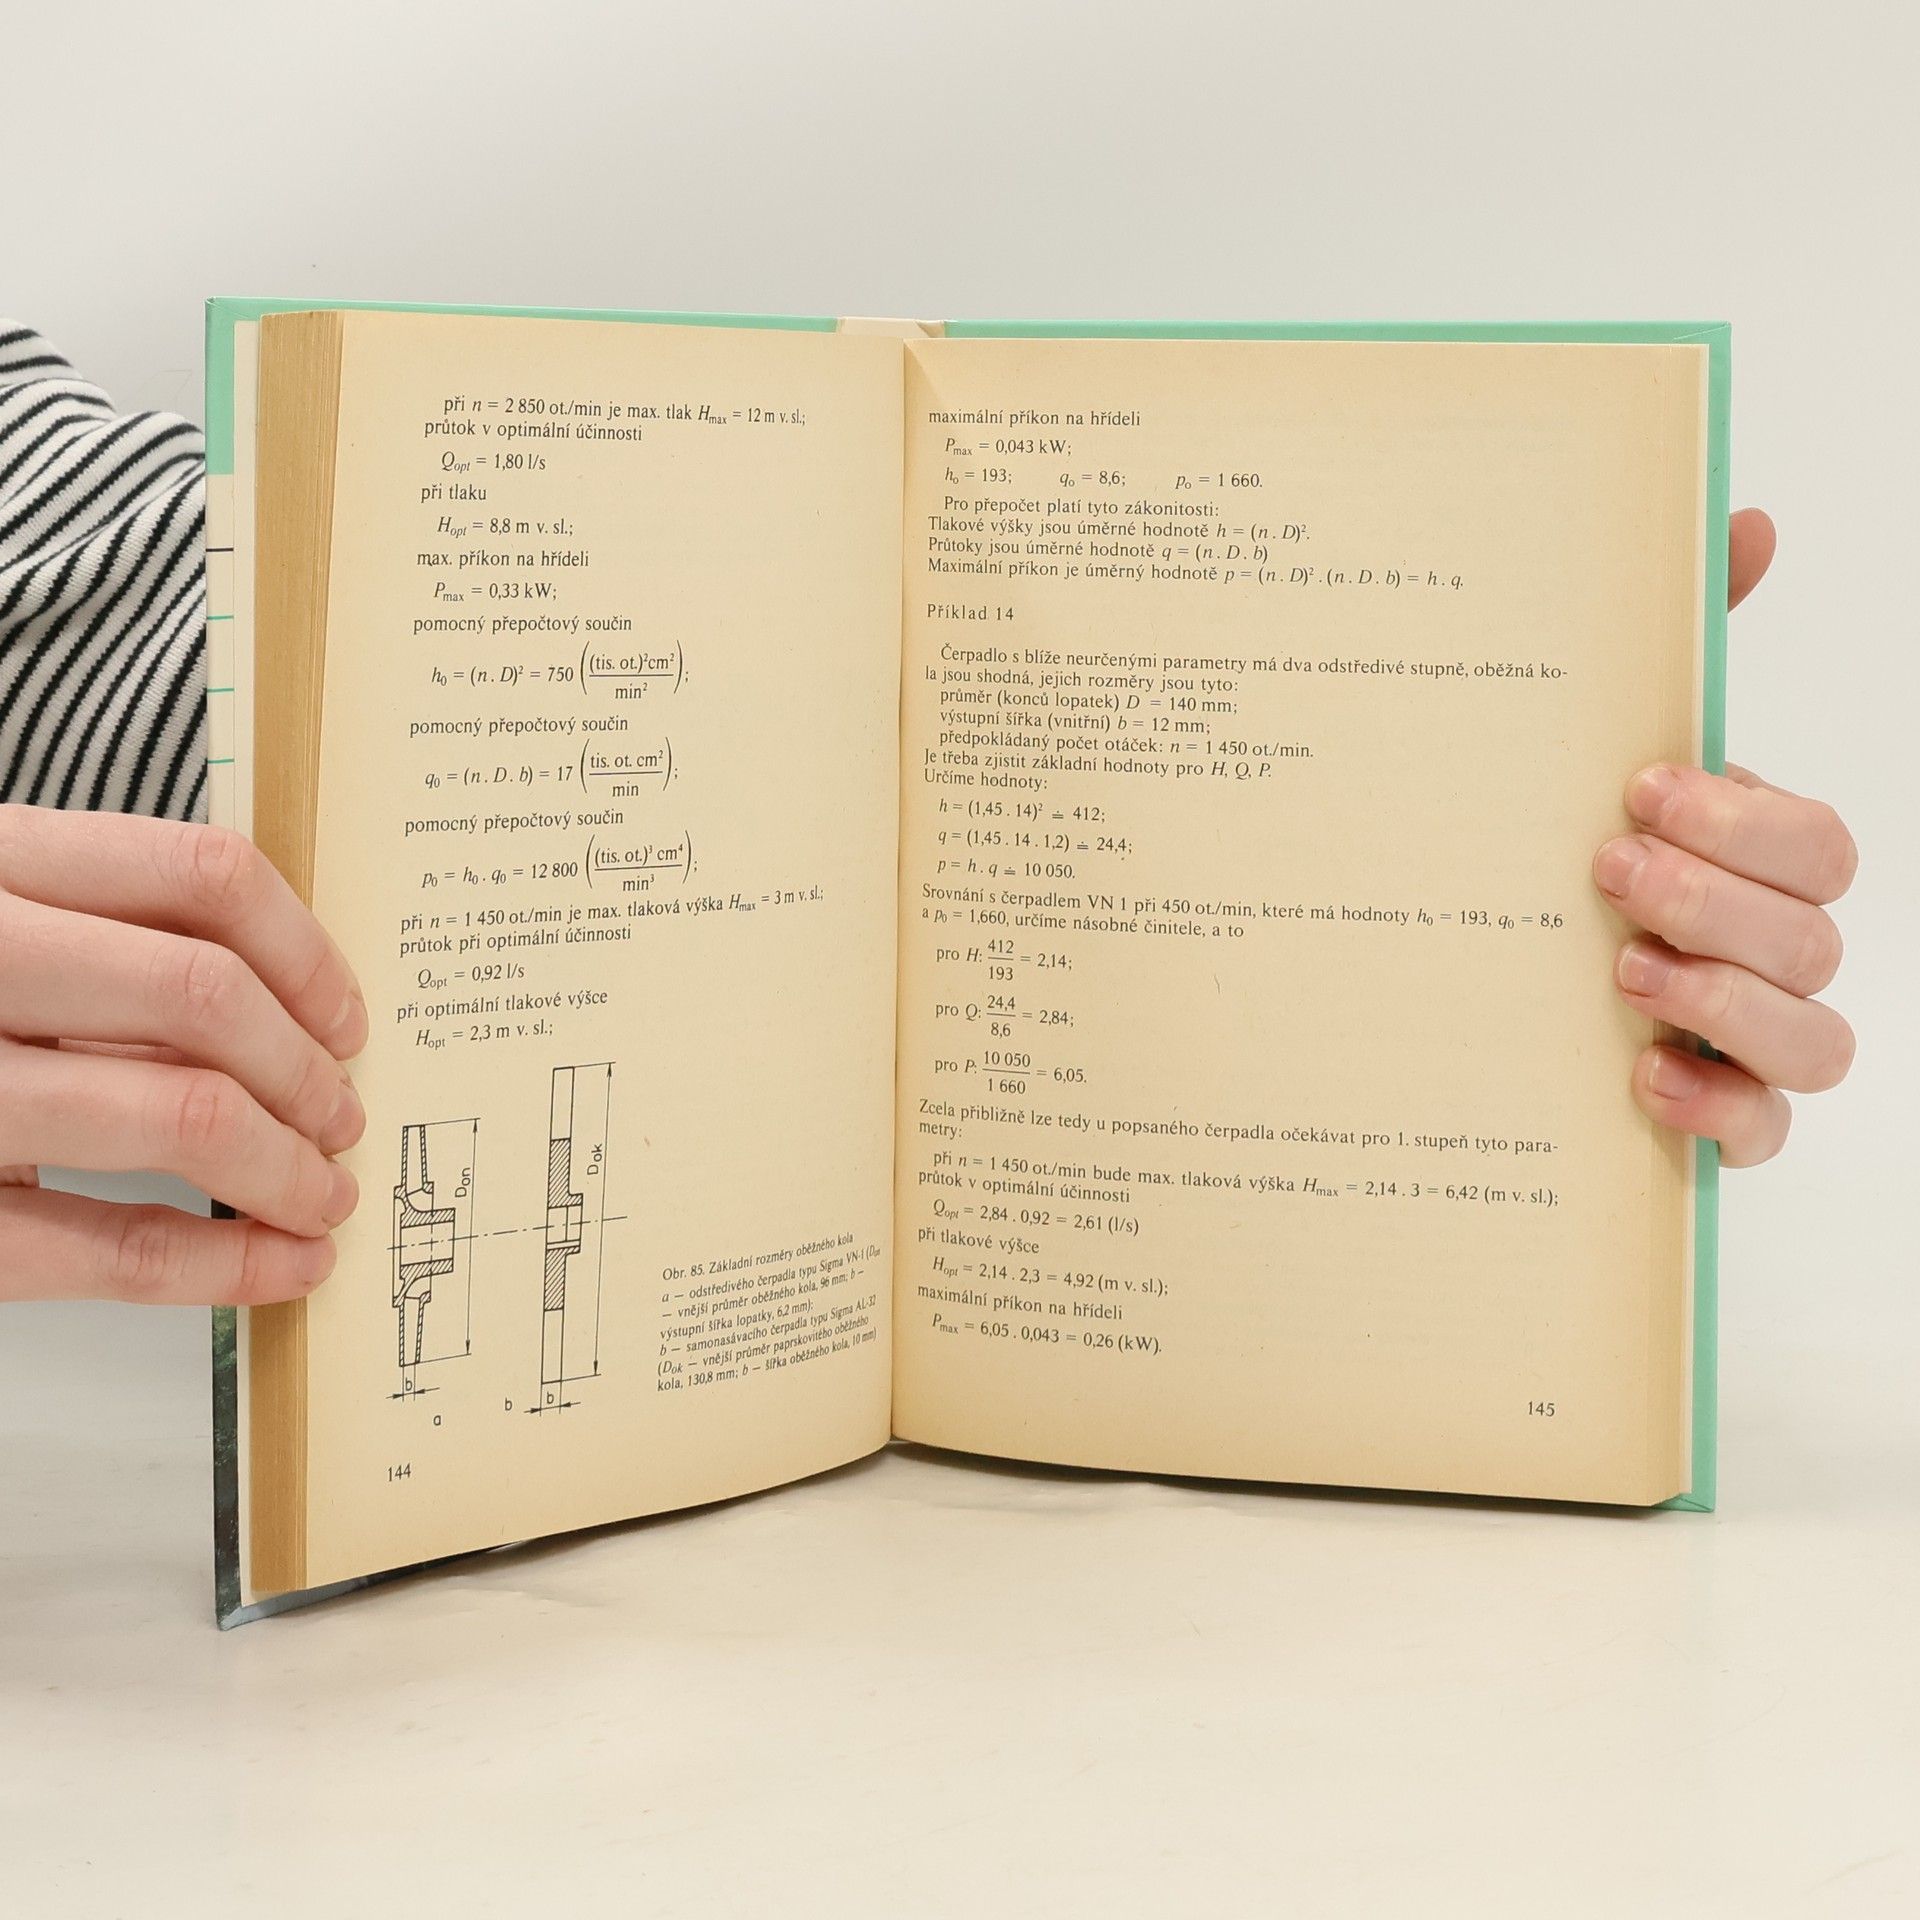 při n = 2 850 ot./min je max. tlak Hmax = 12 m v. sl.;
průtok v optimální účinnosti
Qopt = 1,80 l/s
při tlaku
Hopt = 8,8 m v. sl.;
max. příkon na hřídeli
Pmax = 0,33 kW;
pomocný přepočtový součin
h0 = (n . D)² = 750 ((tis. ot.)²cm² / min²);
pomocný přepočtový součin
q0 = (n . D . b) = 17 (tis. ot. cm² / min);
pomocný přepočtový součin
p0 = h0 . q0 = 12 800 ((tis. ot.)³ cm⁴ / min³);
při n = 1 450 ot./min je max. tlaková výška Hmax = 3 m v. sl.;
průtok při optimální účinnosti
Qopt = 0,92 l/s
při optimální tlakové výšce
Hopt = 2,3 m v. sl.;
Don
Dok
b
a
b
b
Obr. 85. Základní rozměry oběžného kola
a — odstředivého čerpadla typu Sigma VN-1 (Don
— vnější průměr oběžného kola, 96 mm; b —
výstupní šířka lopatky, 6,2 mm);
b — samonasávacího čerpadla typu Sigma AL-32
(Dok — vnější průměr paprskovitého oběžného
kola, 130,8 mm; b — šířka oběžného kola, 10 mm)
144
maximální příkon na hřídeli
Pmax = 0,043 kW;
ho = 193; qo = 8,6; po = 1 660.
Pro přepočet platí tyto zákonitosti:
Tlakové výšky jsou úměrné hodnotě h = (n . D)².
Průtoky jsou úměrné hodnotě q = (n . D . b)
Maximální příkon je úměrný hodnotě p = (n . D)² . (n . D . b) = h . q.
Příklad 14
Čerpadlo s blíže neurčenými parametry má dva odstředivé stupně, oběžná ko-
la jsou shodná, jejich rozměry jsou tyto:
průměr (konců lopatek) D = 140 mm;
výstupní šířka (vnitřní) b = 12 mm;
předpokládaný počet otáček: n = 1 450 ot./min.
Je třeba zjistit základní hodnoty pro H, Q, P.
Určíme hodnoty:
h = (1,45 . 14)² ≐ 412;
q = (1,45 . 14 . 1,2) ≐ 24,4;
p = h . q ≐ 10 050.
Srovnání s čerpadlem VN 1 při 450 ot./min, které má hodnoty h0 = 193, q0 = 8,6
a p0 = 1,660, určíme násobné činitele, a to
pro H: 412 / 193 = 2,14;
pro Q: 24,4 / 8,6 = 2,84;
pro P: 10 050 / 1 660 = 6,05.
Zcela přibližně lze tedy u popsaného čerpadla očekávat pro 1. stupeň tyto para-
metry:
při n = 1 450 ot./min bude max. tlaková výška Hmax = 2,14 . 3 = 6,42 (m v. sl.);
průtok v optimální účinnosti
Qopt = 2,84 . 0,92 = 2,61 (l/s)
při tlakové výšce
Hopt = 2,14 . 2,3 = 4,92 (m v. sl.);
maximální příkon na hřídeli
Pmax = 6,05 . 0,043 = 0,26 (kW).
145